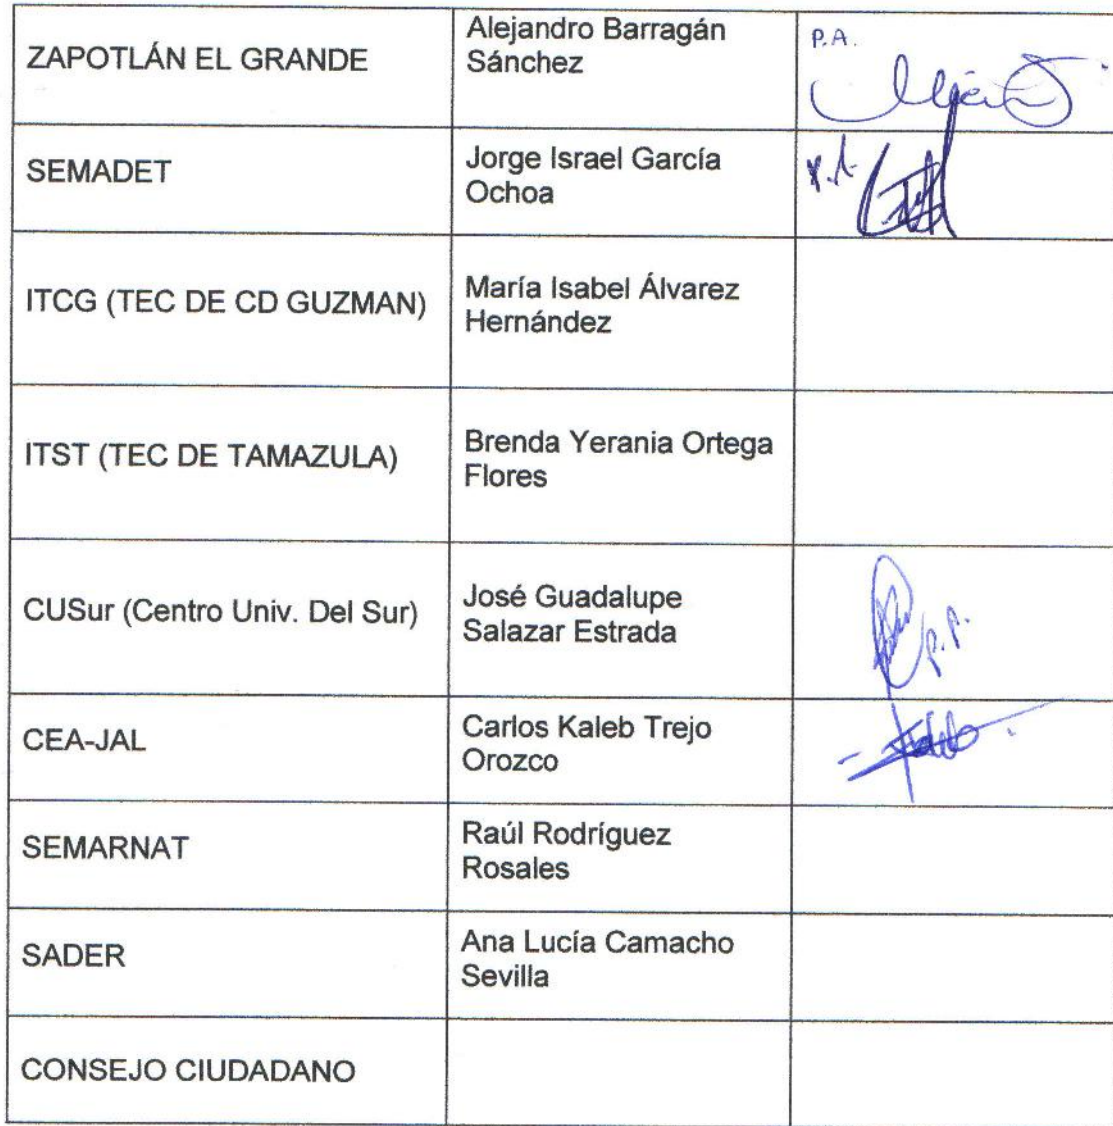 ZAPOTLÁN EL GRANDE
Alejandro Barragán
Sánchez
P.A.
SEMADET
Jorge Israel García
Ochoa
ITCG (TEC DE CD GUZMAN)
María Isabel Álvarez
Hernández
ITST (TEC DE TAMAZULA)
Brenda Yerania Ortega
Flores
CUSur (Centro Univ. Del Sur)
José Guadalupe
Salazar Estrada
P.P.
CEA-JAL
Carlos Kaleb Trejo
Orozco
SEMARNAT
Raúl Rodríguez
Rosales
SADER
Ana Lucía Camacho
Sevilla
CONSEJO CIUDADANO